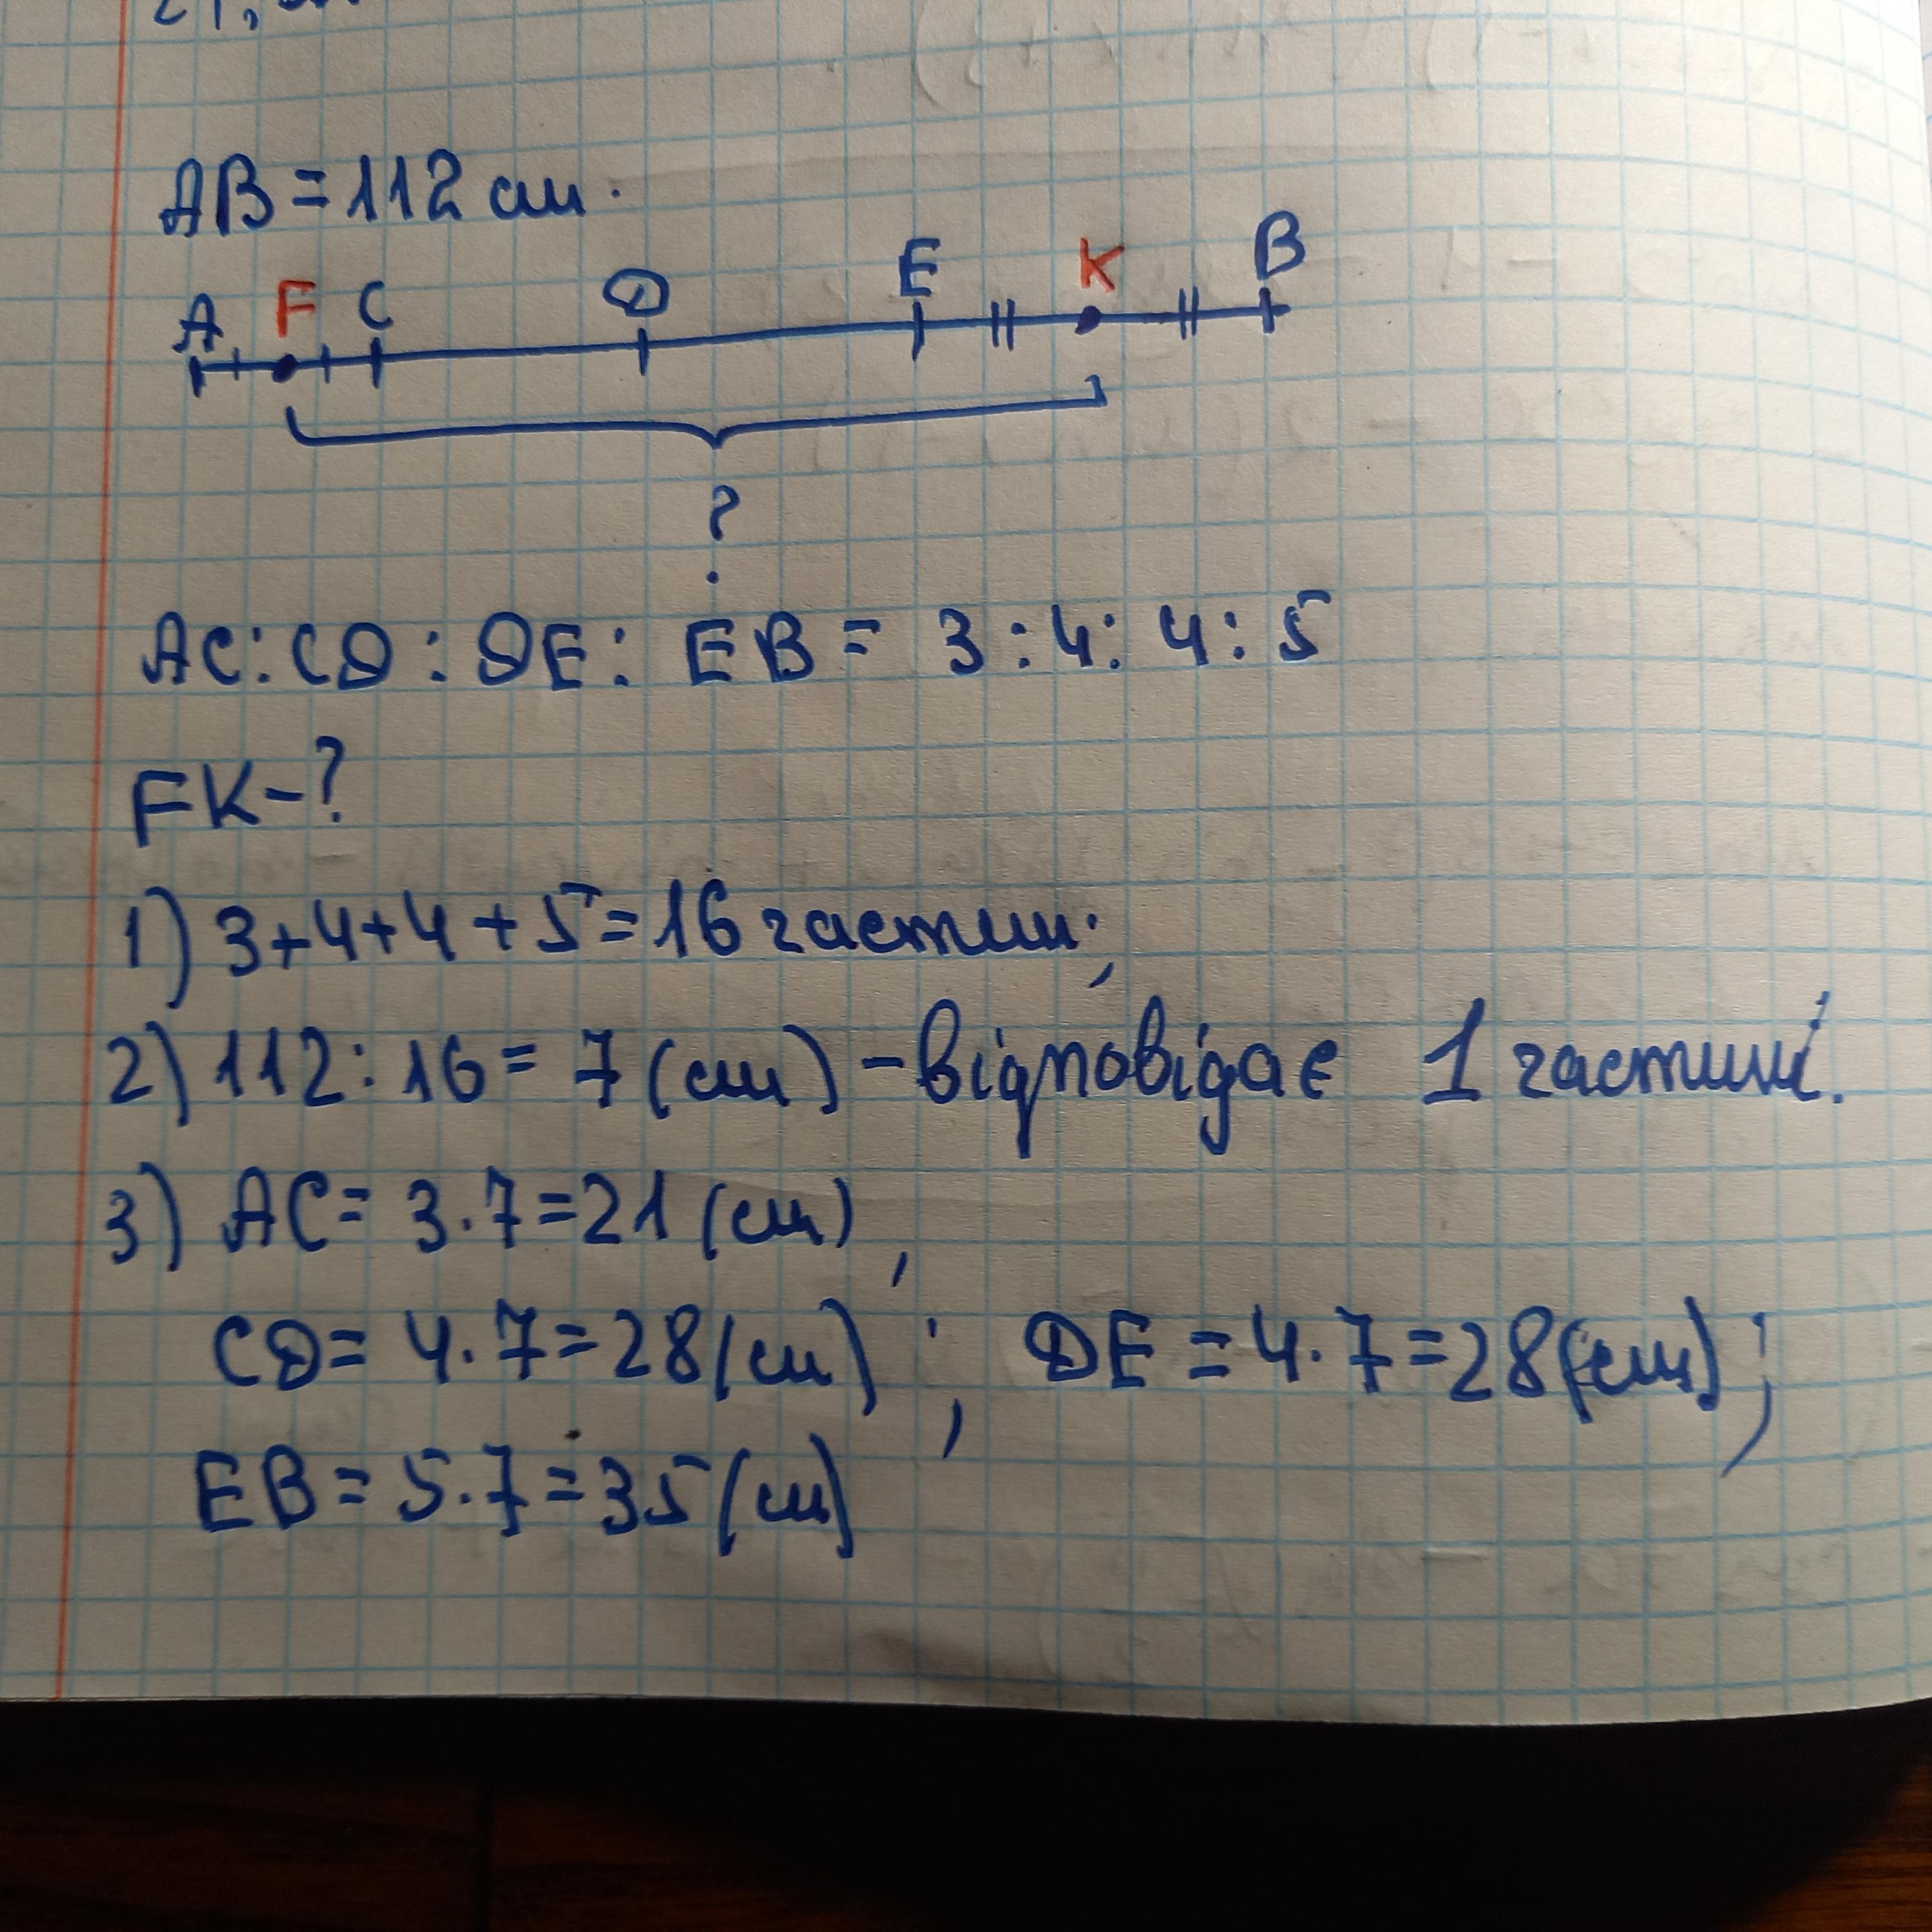 AB = 112 см.
A F C D E K B
?
AC : CD : DE : EB = 3 : 4 : 4 : 5
FK - ?
1) 3+4+4+5=16 частин;
2) 112 : 16 = 7 (см) - відповідає 1 частині.
3) AC = 3·7=21 (см),
CD = 4·7=28 (см); DE = 4·7=28 (см);
EB = 5·7=35 (см)